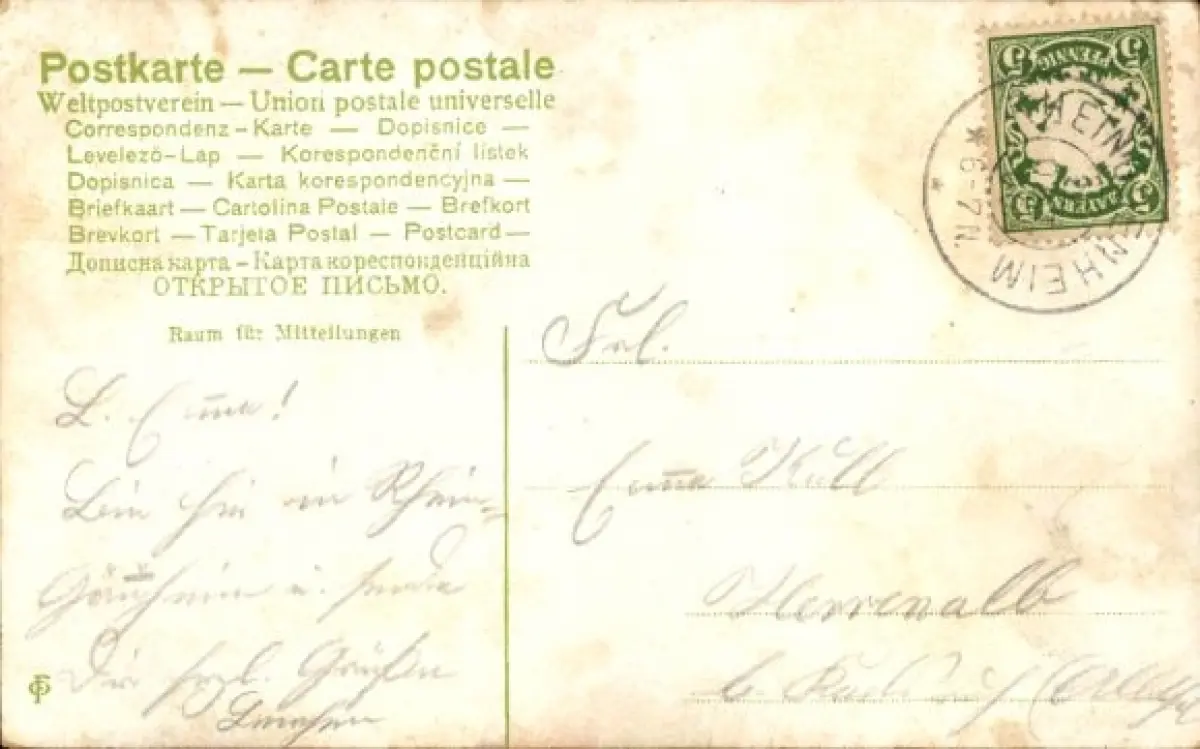 Postkarte — Carte postale
Weltpostverein — Union postale universelle
Correspondenz-Karte — Dopisnice —
Levelező-Lap — Korespondenční lístek
Dopisnica — Karta korespondencyjna —
Briefkaart — Cartolina Postale — Brefkort
Brevkort — Tarjeta Postal — Postcard —
Дописна карта – Карта кореспонденційна
ОТКРЫТОЕ ПИСЬМО.
Raum für Mitteilungen
5 5
PFENNIG
BAYERN
5 5
6-7N.
Frl.
Emma Kull
Herrenalb
L. Emma!
hier in Rhein-
u. sende
Dir hzl. Grüßen